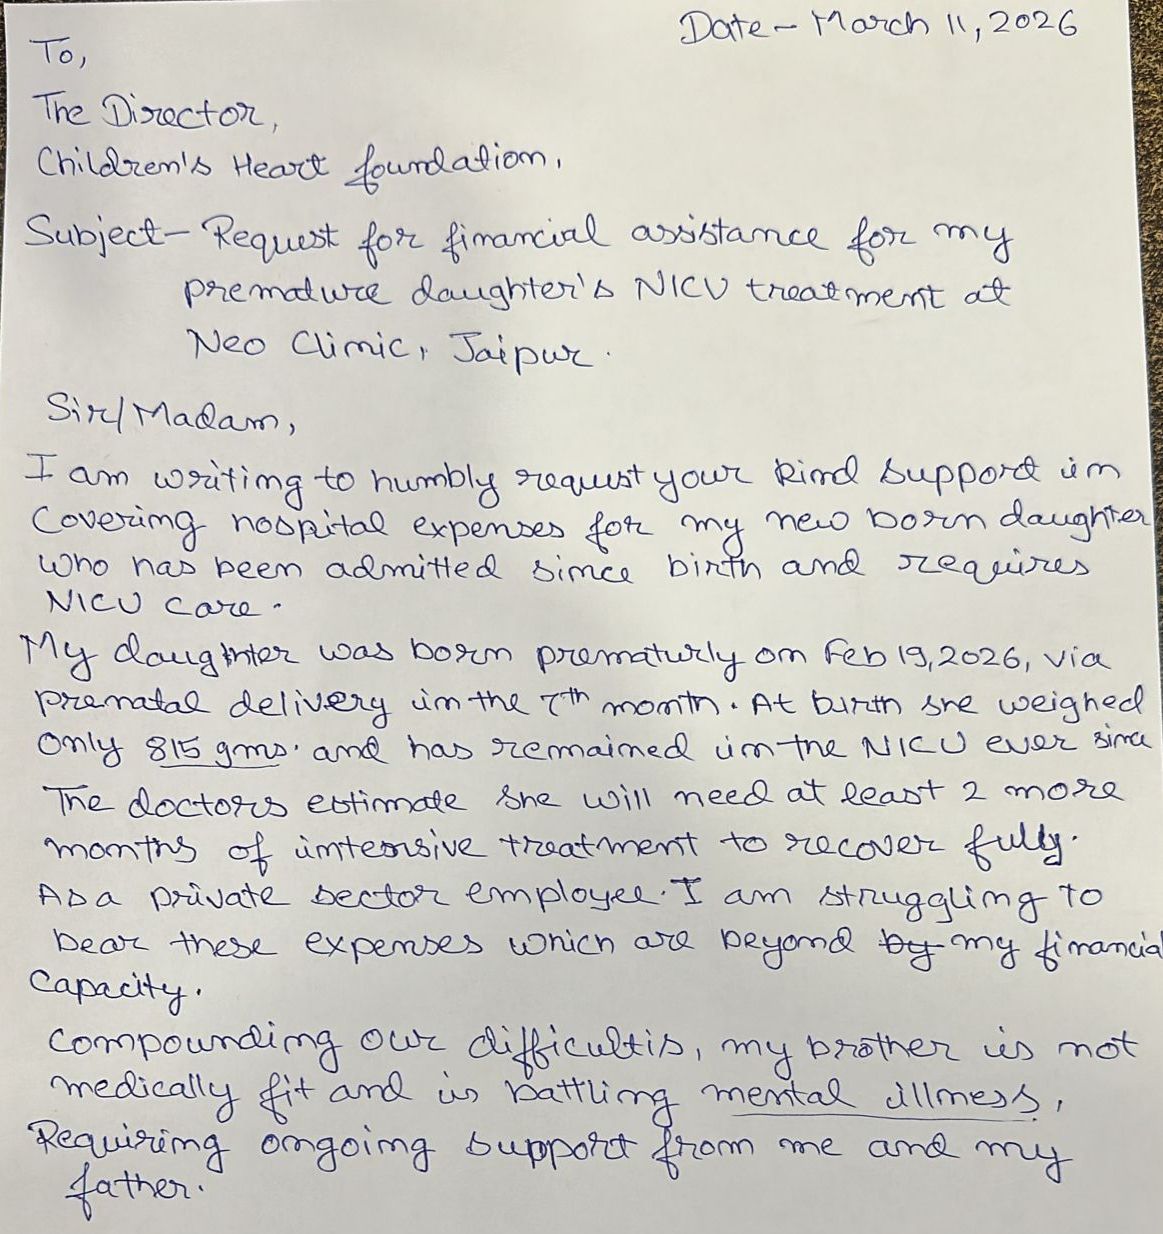 Date - March 11, 2026
To,
The Director,
Children's Heart foundation,
Subject - Request for financial assistance for my
premature daughter's NICU treatment at
Neo Clinic, Jaipur.
Sir/Madam,
I am writing to humbly request your kind support in
Covering hospital expenses for my new born daughter
who has been admitted since birth and requires
NICU care.
My daughter was born prematurly on Feb 19, 2026, via
prenatal delivery in the 7th month. At birth she weighed
only 815 gms. and has remained in the NICU ever since
The doctors estimate she will need at least 2 more
months of intensive treatment to recover fully.
As a private sector employee. I am struggling to
bear these expenses which are beyond by my financial
Capacity.
Compounding our difficultis, my brother is not
medically fit and is battling mental illness,
Requiring ongoing support from me and my
father.